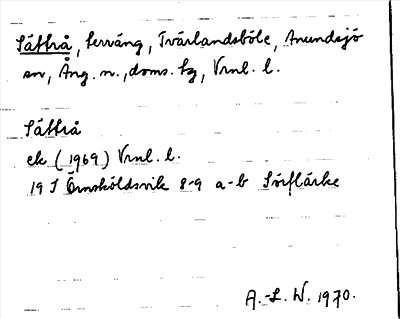 Sätträ, terräng, Tvärlandsböle, Anundsjö
sn, Ång. n., doms. tg, Vrnl. l.
Sätträ
ek (1969) Vrnl. l.
19 J Örnsköldsvik 8-9 a-b Sörflärke
A.-L. W. 1970.